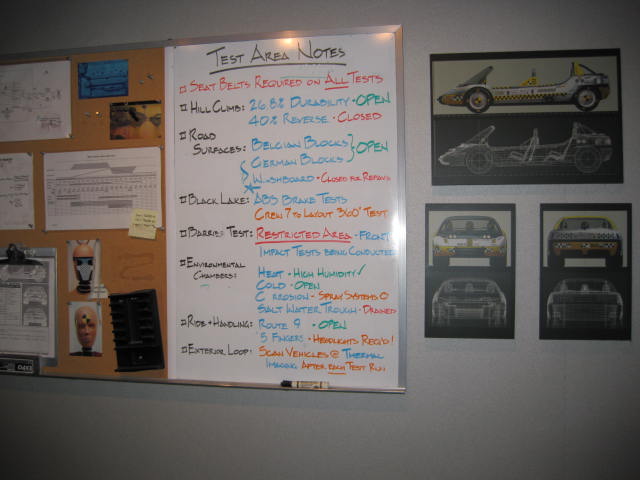 TEST AREA NOTES
SEAT BELTS REQUIRED ON ALL TESTS
HILL CLIMB: 26.8% DURABILITY · OPEN
40% REVERSE · CLOSED
ROAD
SURFACES: BELGIAN BLOCKS
GERMAN BLOCKS } OPEN
WASHBOARD · CLOSED FOR REPAVE
BLACK LAKE: ABS BRAKE TESTS
CREW 7 TO LAYOUT 360' TEST
BARRIER TEST: RESTRICTED AREA · FRONT
IMPACT TESTS BEING CONDUCTED
ENVIRONMENTAL
CHAMBERS: HEAT · HIGH HUMIDITY ✓
COLD · OPEN
C RROSION · SPRAY SYSTEMS O
SALT WATER TROUGH · DRAINED
RIDE + HANDLING: ROUTE 9 · OPEN
5 FINGERS · HEADLIGHTS REQ'D!
EXTERIOR LOOP: SCAN VEHICLES @ THERMAL
IMAGING AFTER EACH TEST RUN